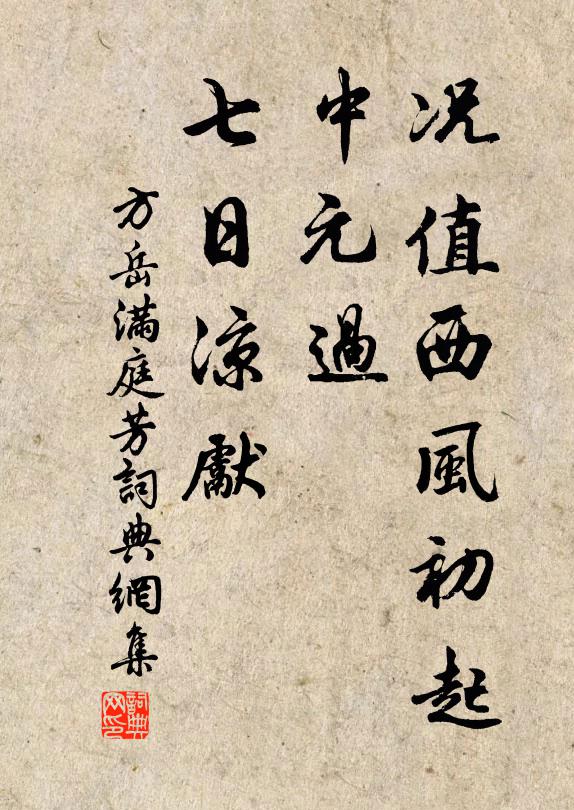 况值西風初起
中元過
七日涼獻
方岳滿庭芳詞典網集
詞典网印